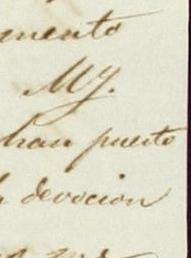 mento
My.
han puesto
devocion